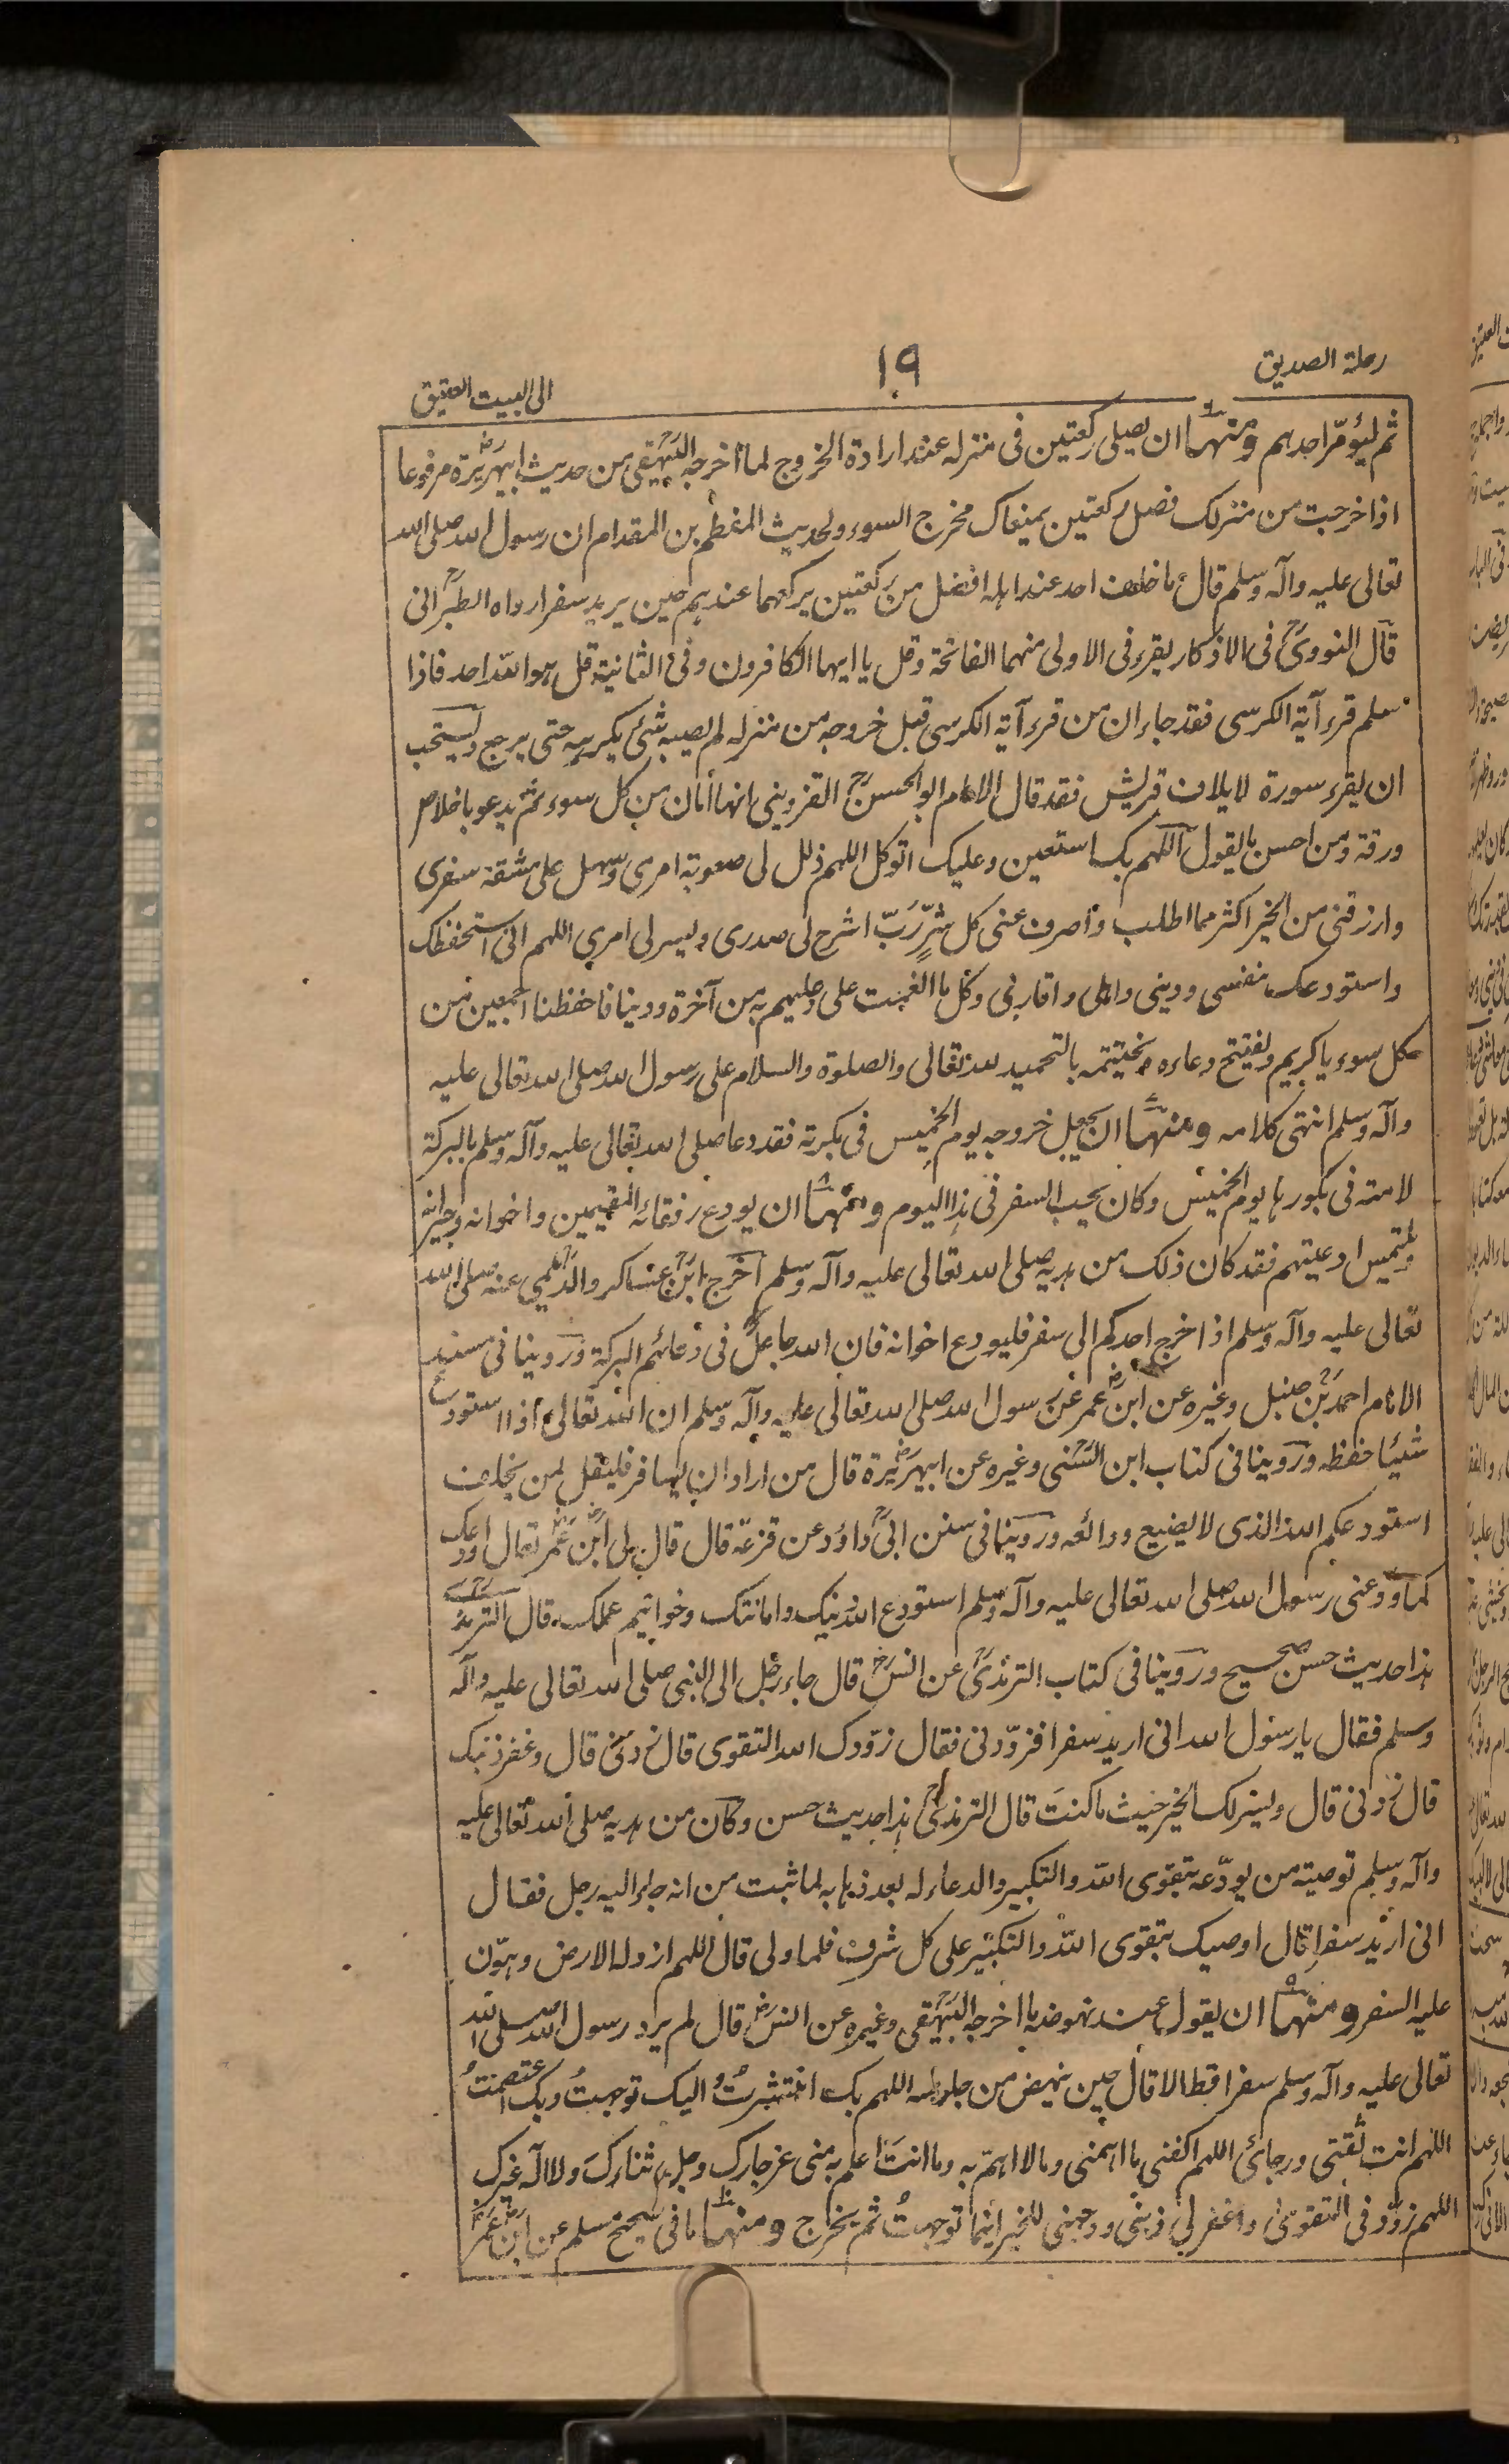 رحلة الصديق
١٩
الى البيت العتيق
ثم ليؤمّر احدهم ومنها ان يصلى ركعتين فى منزله عند ارادة الخروج لما اخرجه البيهقى من حديث ابيهريرة مرفوعا
اذا خرجت من منزلك فصل ركعتين يمنعاك مخرج السوء ولحديث المطعم بن المقدام ان رسول الله صلى الله
تعالى عليه وآله وسلم قال ما خلف احد عند اهله افضل من ركعتين يركعهما عندهم حين يريد سفرا رواه الطبرانى
قال النووى فى الاذكار يقرء فى الاولى منهما الفاتحة وقل يا ايها الكافرون وفى الثانية قل هو الله احد فاذا
سلم قرء آية الكرسى فقد جاء ان من قرء آية الكرسى قبل خروجه من منزله لم يصبه شئ يكرهه حتى يرجع ويستحب
ان يقرء سورة لايلاف قريش فقد قال الامام ابو الحسن القزوينى انها امان من كل سوء ثم يدعو باخلاص
ورقة ومن احسن ما يقول اللهم بك استعين وعليك اتوكل اللهم ذلل لى صعوبة امرى وسهل على مشقة سفرى
وارزقنى من الخير اكثر مما اطلب واصرف عنى كل شرٍّ رَبّ اشرح لى صدرى ويسر لى امرى اللهم انى استحفظك
واستودعك نفسى ودينى واهلى واقاربى وكل ما انعمت على وعليهم به من آخرة ودنيا فاحفظنا اجمعين من
كل سوء يا كريم ويفتتح دعاءه ويختتمه بالتحميد لله تعالى والصلوة والسلام على رسول الله صلى الله تعالى عليه
وآله وسلم انتهى كلامه ومنها ان يجعل خروجه يوم الخميس فى بكرته فقد دعا صلى الله تعالى عليه وآله وسلم بالبركة
لامته فى بكورها يوم الخميس وكان يحب السفر فى هذا اليوم ومنها ان يودع رفقائه المقيمين واخوانه وجيرانه
ويلتمس ادعيتهم فقد كان ذلك من هديه صلى الله تعالى عليه وآله وسلم اخرج ابن عساكر والديلمى عنه صلى الله
تعالى عليه وآله وسلم اذا خرج احدكم الى سفر فليودع اخوانه فان الله جاعل فى دعائهم البركة وروينا فى مسند
الامام احمد بن حنبل وغيره عن ابن عمر عن رسول الله صلى الله تعالى عليه وآله وسلم ان الله تعالى اذا استودع
شيئا حفظه وروينا فى كتاب ابن السنى وغيره عن ابيهريرة قال من اراد ان يسافر فليقل لمن يخلف
استودعكم الله الذى لا يضيع ودائعه وروينا فى سنن ابى داؤد عن قزعة قال قال لى ابن عمر تعال اودعك
كما ودعنى رسول الله صلى الله تعالى عليه وآله وسلم استودع الله دينك وامانتك وخواتيم عملك قال الترمذى
هذا حديث حسن صحيح وروينا فى كتاب الترمذى عن انس قال جاء رجل الى النبى صلى الله تعالى عليه وآله
وسلم فقال يا رسول الله انى اريد سفرا فزوّدنى فقال زوّدك الله التقوى قال زدنى قال وغفر ذنبك
قال زدنى قال ويسر لك الخير حيث ما كنتَ قال الترمذى هذا حديث حسن وكان من هديه صلى الله تعالى عليه
وآله وسلم توصية من يودّعه بتقوى الله والتكبير والدعاء له بعد ذهابه لما ثبت من انه جاء اليه رجل فقال
انى اريد سفرا قال اوصيك بتقوى الله والتكبير على كل شرف فلما ولى قال اللهم ازو له الارض وهوّن
عليه السفر ومنها ان يقول عند نهوضه ما اخرجه البيهقى وغيره عن انس قال لم يرد رسول الله صلى الله
تعالى عليه وآله وسلم سفرا قط الا قال حين ينهض من جلوسه اللهم بك انتشرتُ واليك توجهتُ وبك اعتصمتُ
اللهم انت ثقتى ورجائى اللهم اكفنى ما اهمنى وما لا اهتمّ به وما انتَ اعلم به منى عز جارك وجل ثناءكَ ولا اله غيرك
اللهم زوّدنى التقوى واغفر لى ذنبى ووجهنى للخير اينما توجهتُ ثم يخرج ومنها ما فى صحيح مسلم عن ابن عمر